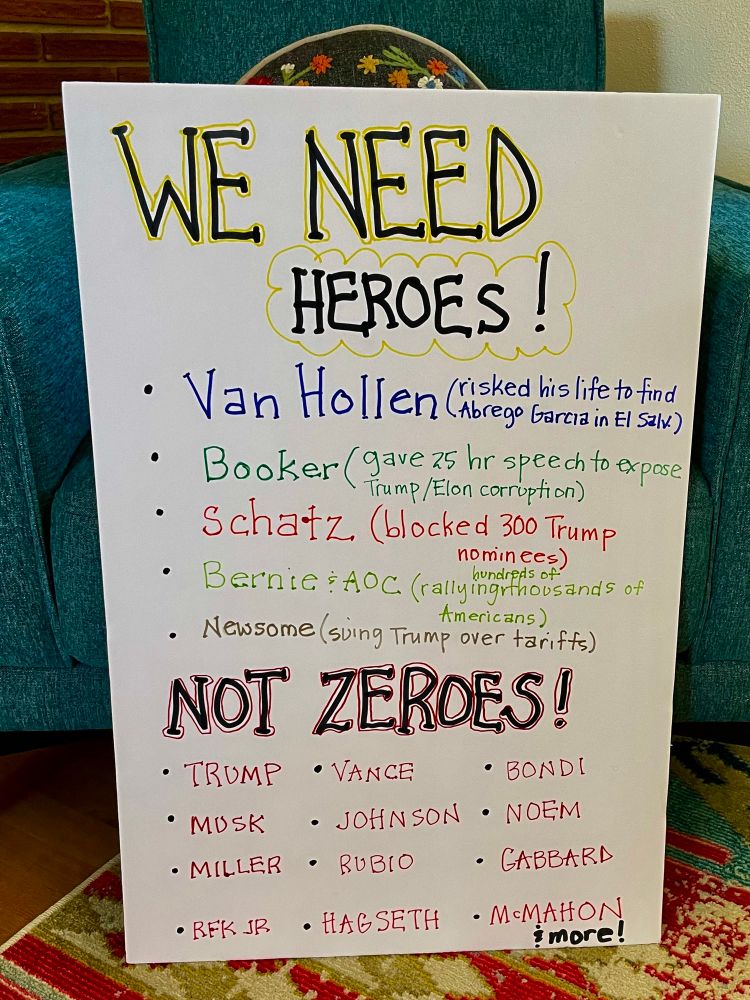 WE NEED
HEROES!
• Van Hollen (risked his life to find
Abrego Garcia in El Salv.)
• Booker (gave 25 hr speech to expose
Trump/Elon corruption)
• Schatz (blocked 300 Trump
nominees)
• Bernie & AOC (rallying hundreds of thousands of
Americans)
• Newsome (suing Trump over tariffs)
NOT ZEROES!
• TRUMP • VANCE • BONDI
• MUSK • JOHNSON • NOEM
• MILLER • RUBIO • GABBARD
• RFK JR • HAGSETH • McMAHON
& more!